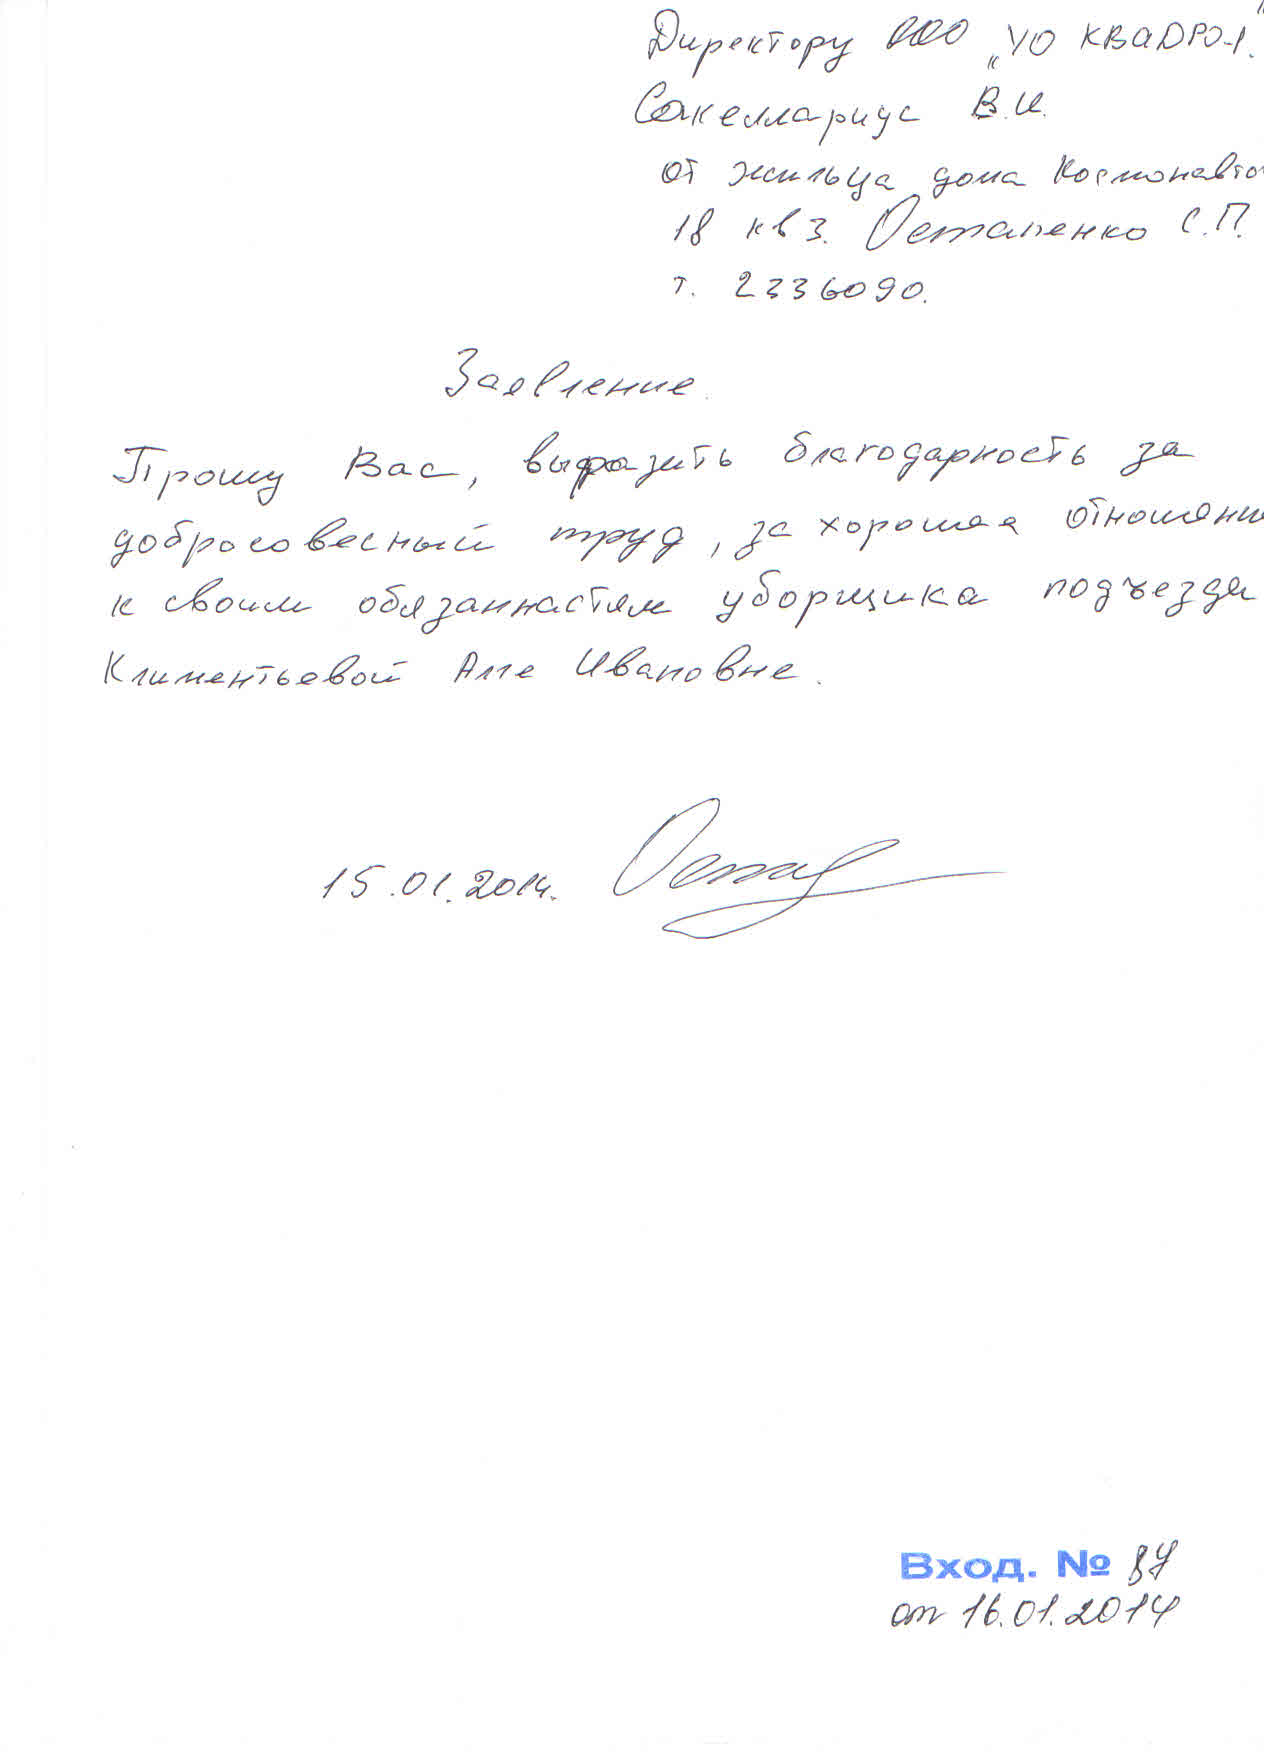 Директору ООО „УО КВАДРО-1."
Сакеллариус В.И.
от жильца дома Космонавтов
18 кв 3. Остапенко С.П.
т. 2336090.
Заявление.
Прошу Вас, выразить благодарность за
добросовесный труд, за хорошея отношени
к своим обязаннастям уборщика подъезда
Климентьевой Алле Ивановне.
15.01.2014.
Вход. № 87
от 16.01.2014